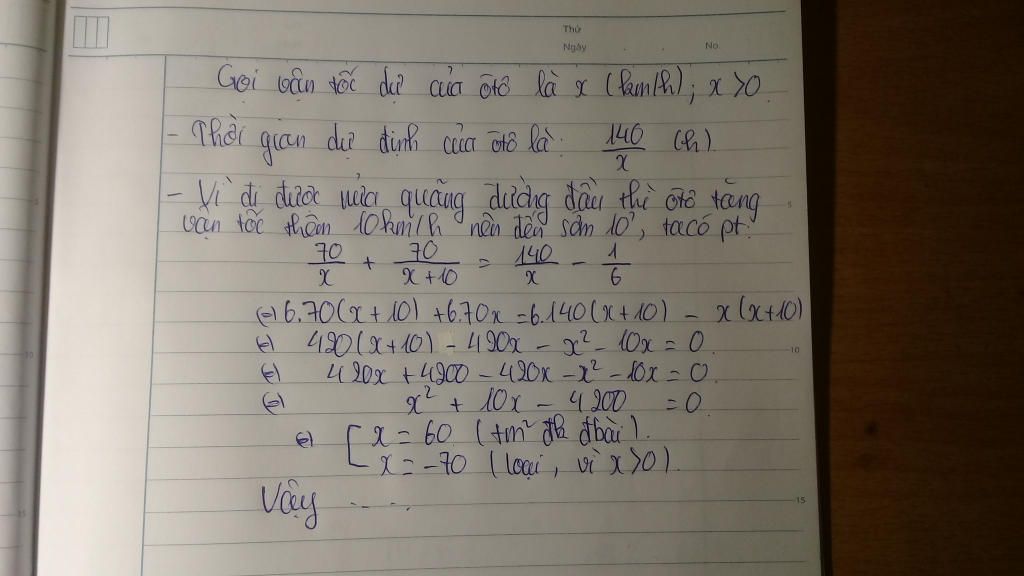 Thứ
Ngày . . No.
Gọi vận tốc dự của ôtô là x (km/h); x > 0
- Thời gian dự định của ôtô là: 140/x (h).
- Vì đi được nửa quãng đường đầu thì ôtô tăng
vận tốc thêm 10km/h nên đến sớm 10', ta có pt:
70/x + 70/(x+10) = 140/x - 1/6
(=) 6.70(x+10) + 6.70x = 6.140(x+10) - x(x+10)
(=) 420(x+10) - 420x - x² - 10x = 0
(=) 420x + 4200 - 420x - x² - 10x = 0
(=) x² + 10x - 4200 = 0
(=) [ x = 60 (tm² đk đbài).
x = -70 (loại, vì x>0).
Vậy .....
5
10
15